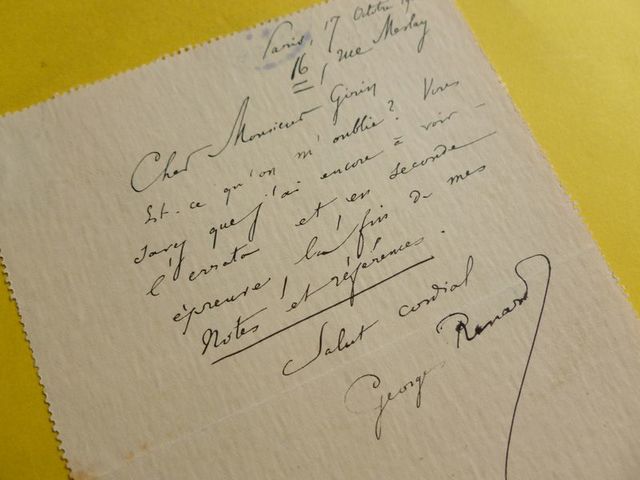 Paris, 17 Octobre 19
16, rue Meslay
Cher Monsieur Girin
Est-ce qu'on m'oublie? Vous
savez que j'ai encore à voir -
l'errata et en seconde
épreuve, la fin de mes
Notes et références.
Salut cordial
Georges Renard